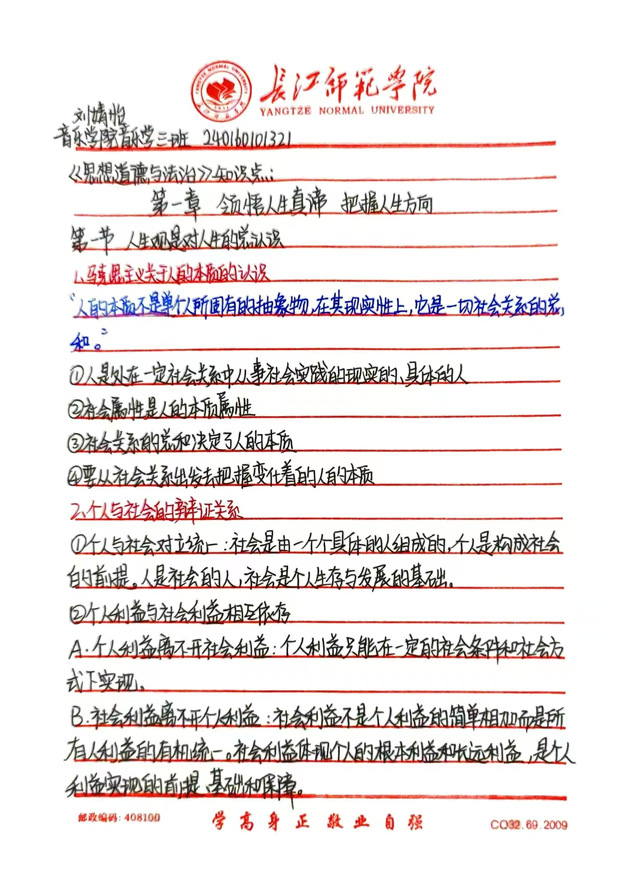 YANGTZE NORMAL UNIVERSITY
长江师范学院
长江师范学院
YANGTZE NORMAL UNIVERSITY
刘婧怡
音乐学院音乐学三班 240160101321
《思想道德与法治》知识点：
第一章 领悟人生真谛 把握人生方向
第一节 人生观是对人生的总认识
1、马克思主义关于人的本质的认识
“人的本质不是单个人所固有的抽象物，在其现实性上，它是一切社会关系的总
和。”
①人是处在一定社会关系中从事社会实践的现实的、具体的人
②社会属性是人的本质属性
③社会关系的总和决定了人的本质
④要从社会关系出发去把握变化着的人的本质
2、个人与社会的辩证关系
①个人与社会对立统一：社会是由一个个具体的人组成的，个人是构成社会
的前提。人是社会的人，社会是个人生存与发展的基础。
②个人利益与社会利益相互依存
A.个人利益离不开社会利益：个人利益只能在一定的社会条件和社会方
式下实现。
B.社会利益离不开个人利益：社会利益不是个人利益的简单相加而是所
有人利益的有机统一。社会利益体现个人的根本利益和长远利益，是个人
利益实现的前提、基础和保障。
邮政编码：408100
学高身正 敬业自强
CO32.69.2009